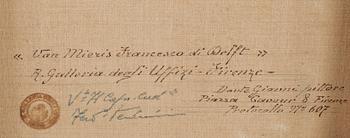 « Van Mieris Francesco di Delft »
R. Galleria degli Uffizi - Firenze -
Dante Gianni pittore
Piazza Cavour 8 Firenze
Protocollo Nº 607
Vº Il